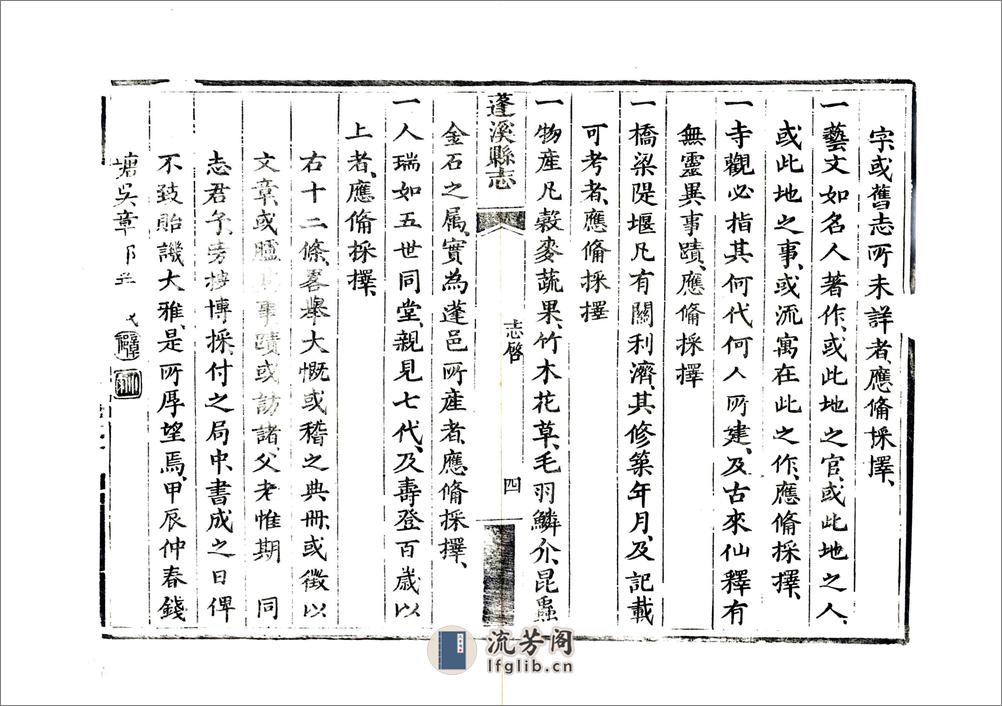 字或舊志所未詳者、應備採擇、
一藝文如名人著作、或此地之官、或此地之人、
或此地之事、或流寓在此之作、應備採擇、
一寺觀必指其何代何人所建、及古來仙釋有
無靈異事蹟、應備採擇
一橋梁隄堰凡有關利濟、其修築年月、及記載
可考者、應備採擇
一物產凡穀麥蔬果、竹木花草、毛羽鱗介、昆蟲
蓬溪縣志
志啓
四
金石之属、實為蓬邑所產者、應備採擇、
一人瑞如五世同堂、親見七代、及壽登百歲以
上者、應備採擇、
右十二條、畧舉大慨或稽之典冊、或徵以
文章、或臚事蹟或訪諸、父老惟期 同
志君子、旁搜博採、付之局中、書成之日俾
不致貽譏大雅、是所厚望焉、甲辰仲春錢
塘吳章
流芳阁
lfglib.cn